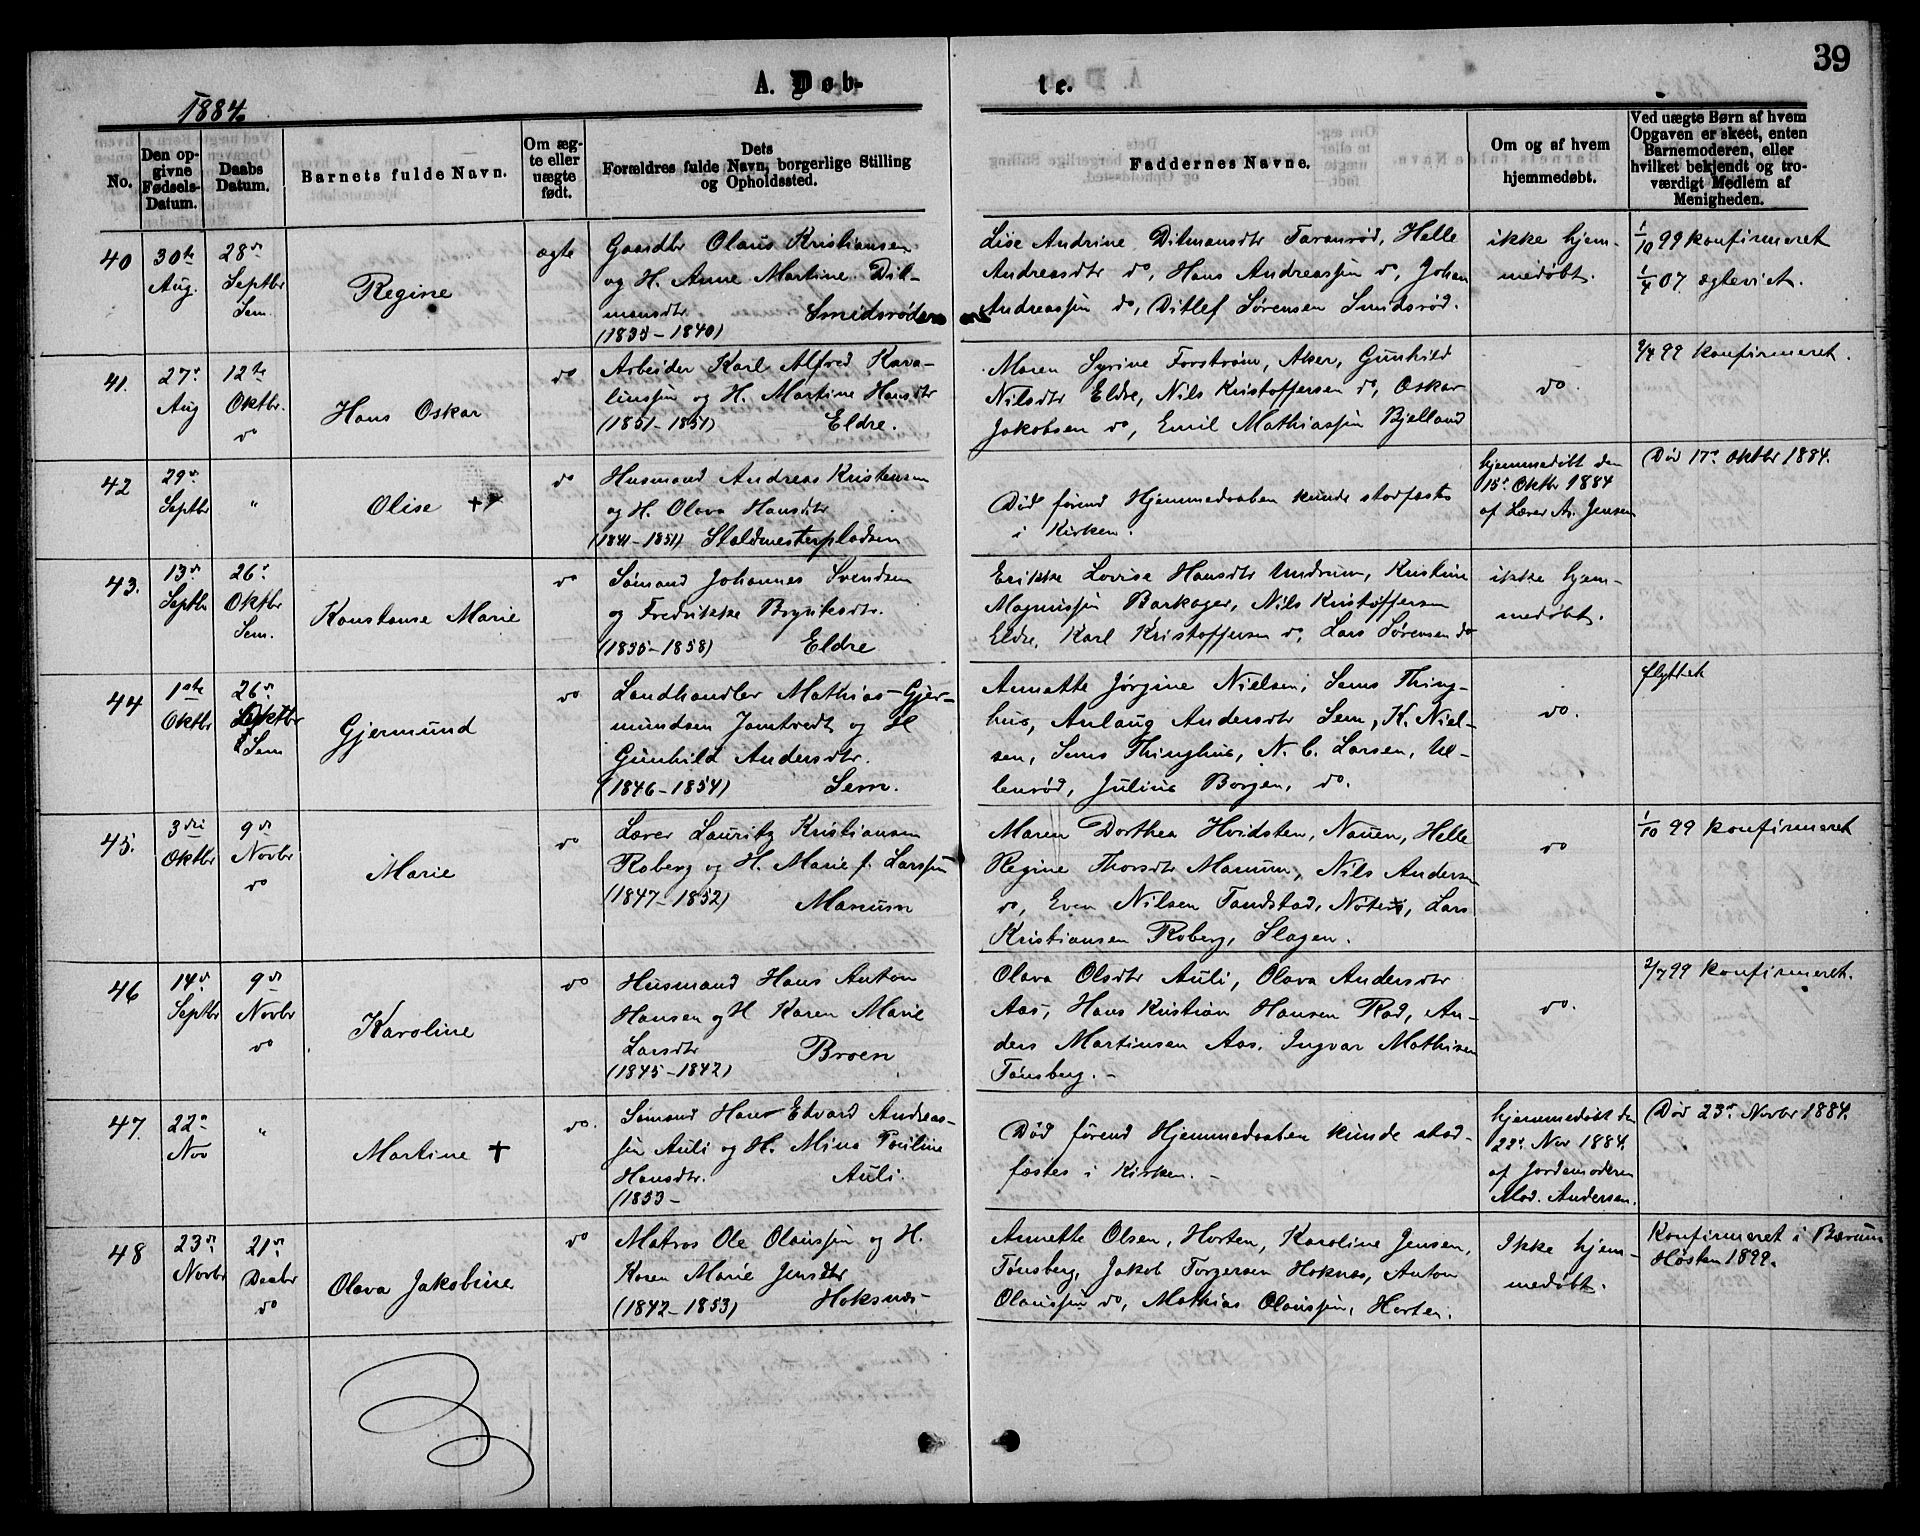 39
A. Døb-
te.
1884.
No.
Den op-
givne
Fødsels-
Datum.
Daabs
Datum.
Barnets fulde Navn.
Om æg-
te eller
uægte
født.
Dets
Forældres fulde Navn, borgerlige Stilling
og Opholdssted.
Faddernes Navne.
Om og af hvem
hjemmedøbt.
Ved uægte Børn af hvem
Opgaven er skeet, enten
Barnemoderen, eller
hvilket bekjendt og tro-
værdigt Medlem af
Menigheden.
40
30te
Aug.
28de
Septbr
Sem.
Regine
ægte
Gaardbr Olaus Kristiansen
og H. Anne Martine Dit-
mansdtr Smidsrød
(1835-1840)
Lise Andrine Ditmansdtr Taranrød, Helle
Andreasdtr do, Hans Andreassøn do, Johan
Andreassøn do, Ditlef Sørensen Smidsrød.
ikke hjem-
medøbt.
1/10 99 konfirmeret
1/4 07. ægteviet.
41.
27de
Aug
12te
Oktbr.
do
Hans Oskar
do
Arbeider Karl Alfred Kava-
linssøn og H. Martine Hansdtr
(1851-1851) Eldre.
Maren Syrine Forstrøm, Aker, Gunhild
Nilsdtr Eldre, Nils Kristoffersen do, Oskar
Jakobsen do, Emil Mathiassøn Bjelland
do.
2/4 99 konfirmeret.
42
29de
Septbr
"
Olise +
do
Husmand Andreas Kristensen
og H. Olava Hansdtr
(1841-1851) Staldmesterpladsen
Død førend Hjemmedaaben kunde stadfæstes
i Kirken.
hjemmedøbt den
15de Oktbr 1884
af Lærer A. Jensen
Død 17de Oktbr 1884.
43.
13de
Septbr
26de
Oktbr
Sem.
Konstanse Marie
do
Sømand Johannes Svendsen
og Fredrikke Bryniksdtr.
(1835-1858) Eldre
Erikke Lovise Hansdtr Undrum, Kristine
Magnussøn Barkager, Nils Kristoffersen
Eldre, Karl Kristoffersen do, Lars Sørensen do
ikke hjem-
medøbt.
44
1ste
Oktbr
26de
Oktbr
Sem
Gjermund
do
Landhandler Mathias Gjer-
mundsen Jamtvedt og H
Gunhild Andersdtr.
(1846-1854) Sem.
Annette Jørgine Nielsen, Sems Thing-
hus, Anlaug Andersdtr Sem, K. Niel-
sen, Sems Thinghus, N. C. Larsen, Ul-
lenrød, Julius Borgen, do.
do.
flyttet
45.
3die
Oktbr
9de
Novbr
do
Marie
do
Lærer Lauritz Kristiansen
Roberg og H. Marie f. Larssøn
(1847-1852) Manum
Maren Dorthea Hvidsten, Nauen, Helle
Regine Thorsdtr Manum, Nils Andersen
do, Even Nilsen Tandstad, Nøterø, Lars
Kristiansen Roberg, Slagen.
do
1/10 99 konfirmeret
46
14de
Septbr
9de
Novbr
do
Karoline
do
Husmand Hans Anton
Hansen og H Karen Marie
Larsdtr Broen
(1845-1842)
Olava Olsdtr Auli, Olava Andersdtr
Aas, Hans Kristian Hansen Rød, An-
ders Martinsen Aas, Ingvar Mathisen
Tønsberg.-
do.
2/7 99 konfirmeret.
47.
22de
Nov
"
Martine +
do.
Sømand Hans Edvard Andreas-
søn Auli og H. Mina Pauline
Hansdtr. Auli.
(1853-
Død førend Hjemmedaaben kunde stad-
fæstes i Kirken.-
hjemmedøbt den
22de Nov 1884.
af Jordemoderen
Mad. Andersen.
Død 23de Novbr 1884.
48
23de
Novbr
21de
Decbr
do
Olava Jakobine
do
Matros Ole Olaussøn og H.
Karen Marie Jensdtr
(1842-1853) Hoksnæs
Annette Olsen, Horten, Karoline Jensen,
Tønsberg, Jakob Torgersen Hoknæs, Anton
Olaussøn do, Mathias Olaussøn, Horten.
Ikke hjem-
medøbt.
Konfirmeret i Bærum
Høsten 1899.